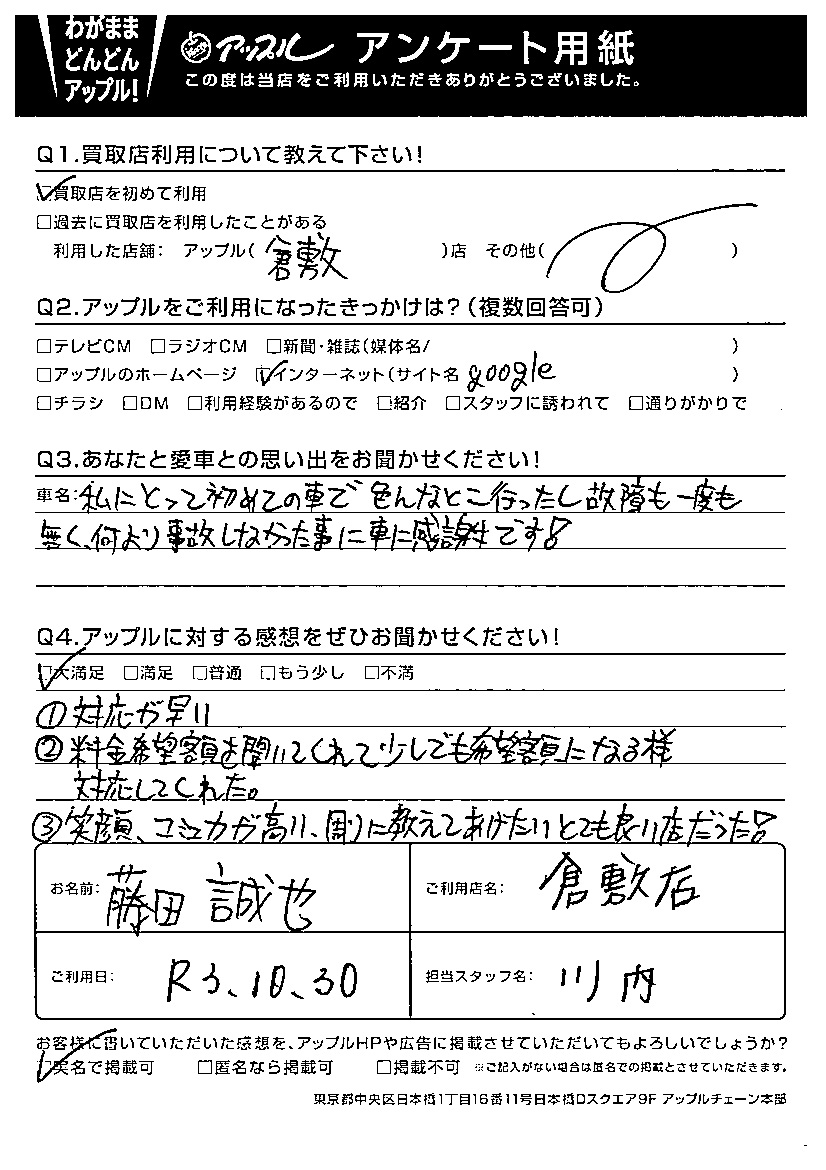 わがまま
どんどん
アップル!
アップル アンケート用紙
この度は当店をご利用いただきありがとうございました。
Q1.買取店利用について教えて下さい!
☑買取店を初めて利用
□過去に買取店を利用したことがある
利用した店舗: アップル( 倉敷 )店 その他( )
Q2.アップルをご利用になったきっかけは?(複数回答可)
□テレビCM □ラジオCM □新聞・雑誌(媒体名/ )
□アップルのホームページ ☑インターネット(サイト名 google )
□チラシ □DM □利用経験があるので □紹介 □スタッフに誘われて □通りがかりで
Q3.あなたと愛車との思い出をお聞かせください!
車名:私にとって初めての車で 色んなとこ行ったし故障も一度も
無く、何より事故しなかった事に車に感謝です!
Q4.アップルに対する感想をぜひお聞かせください!
☑大満足 □満足 □普通 □もう少し □不満
①対応が早い
②料金希望額を聞いてくれて少しでも希望額になる様
対応してくれた。
③笑顔、コミュ力が高い、周りに教えてあげたいとても良い店だった!
お名前: 藤田 誠也 ご利用店名: 倉敷店
ご利用日: R3、10、30 担当スタッフ名: 川内
お客様に書いていただいた感想を、アップルHPや広告に掲載させていただいてもよろしいでしょうか?
☑実名で掲載可 □匿名なら掲載可 □掲載不可 ※ご記入がない場合は匿名での掲載とさせていただきます。
東京都中央区日本橋1丁目16番11号日本橋Dスクエア9F アップルチェーン本部